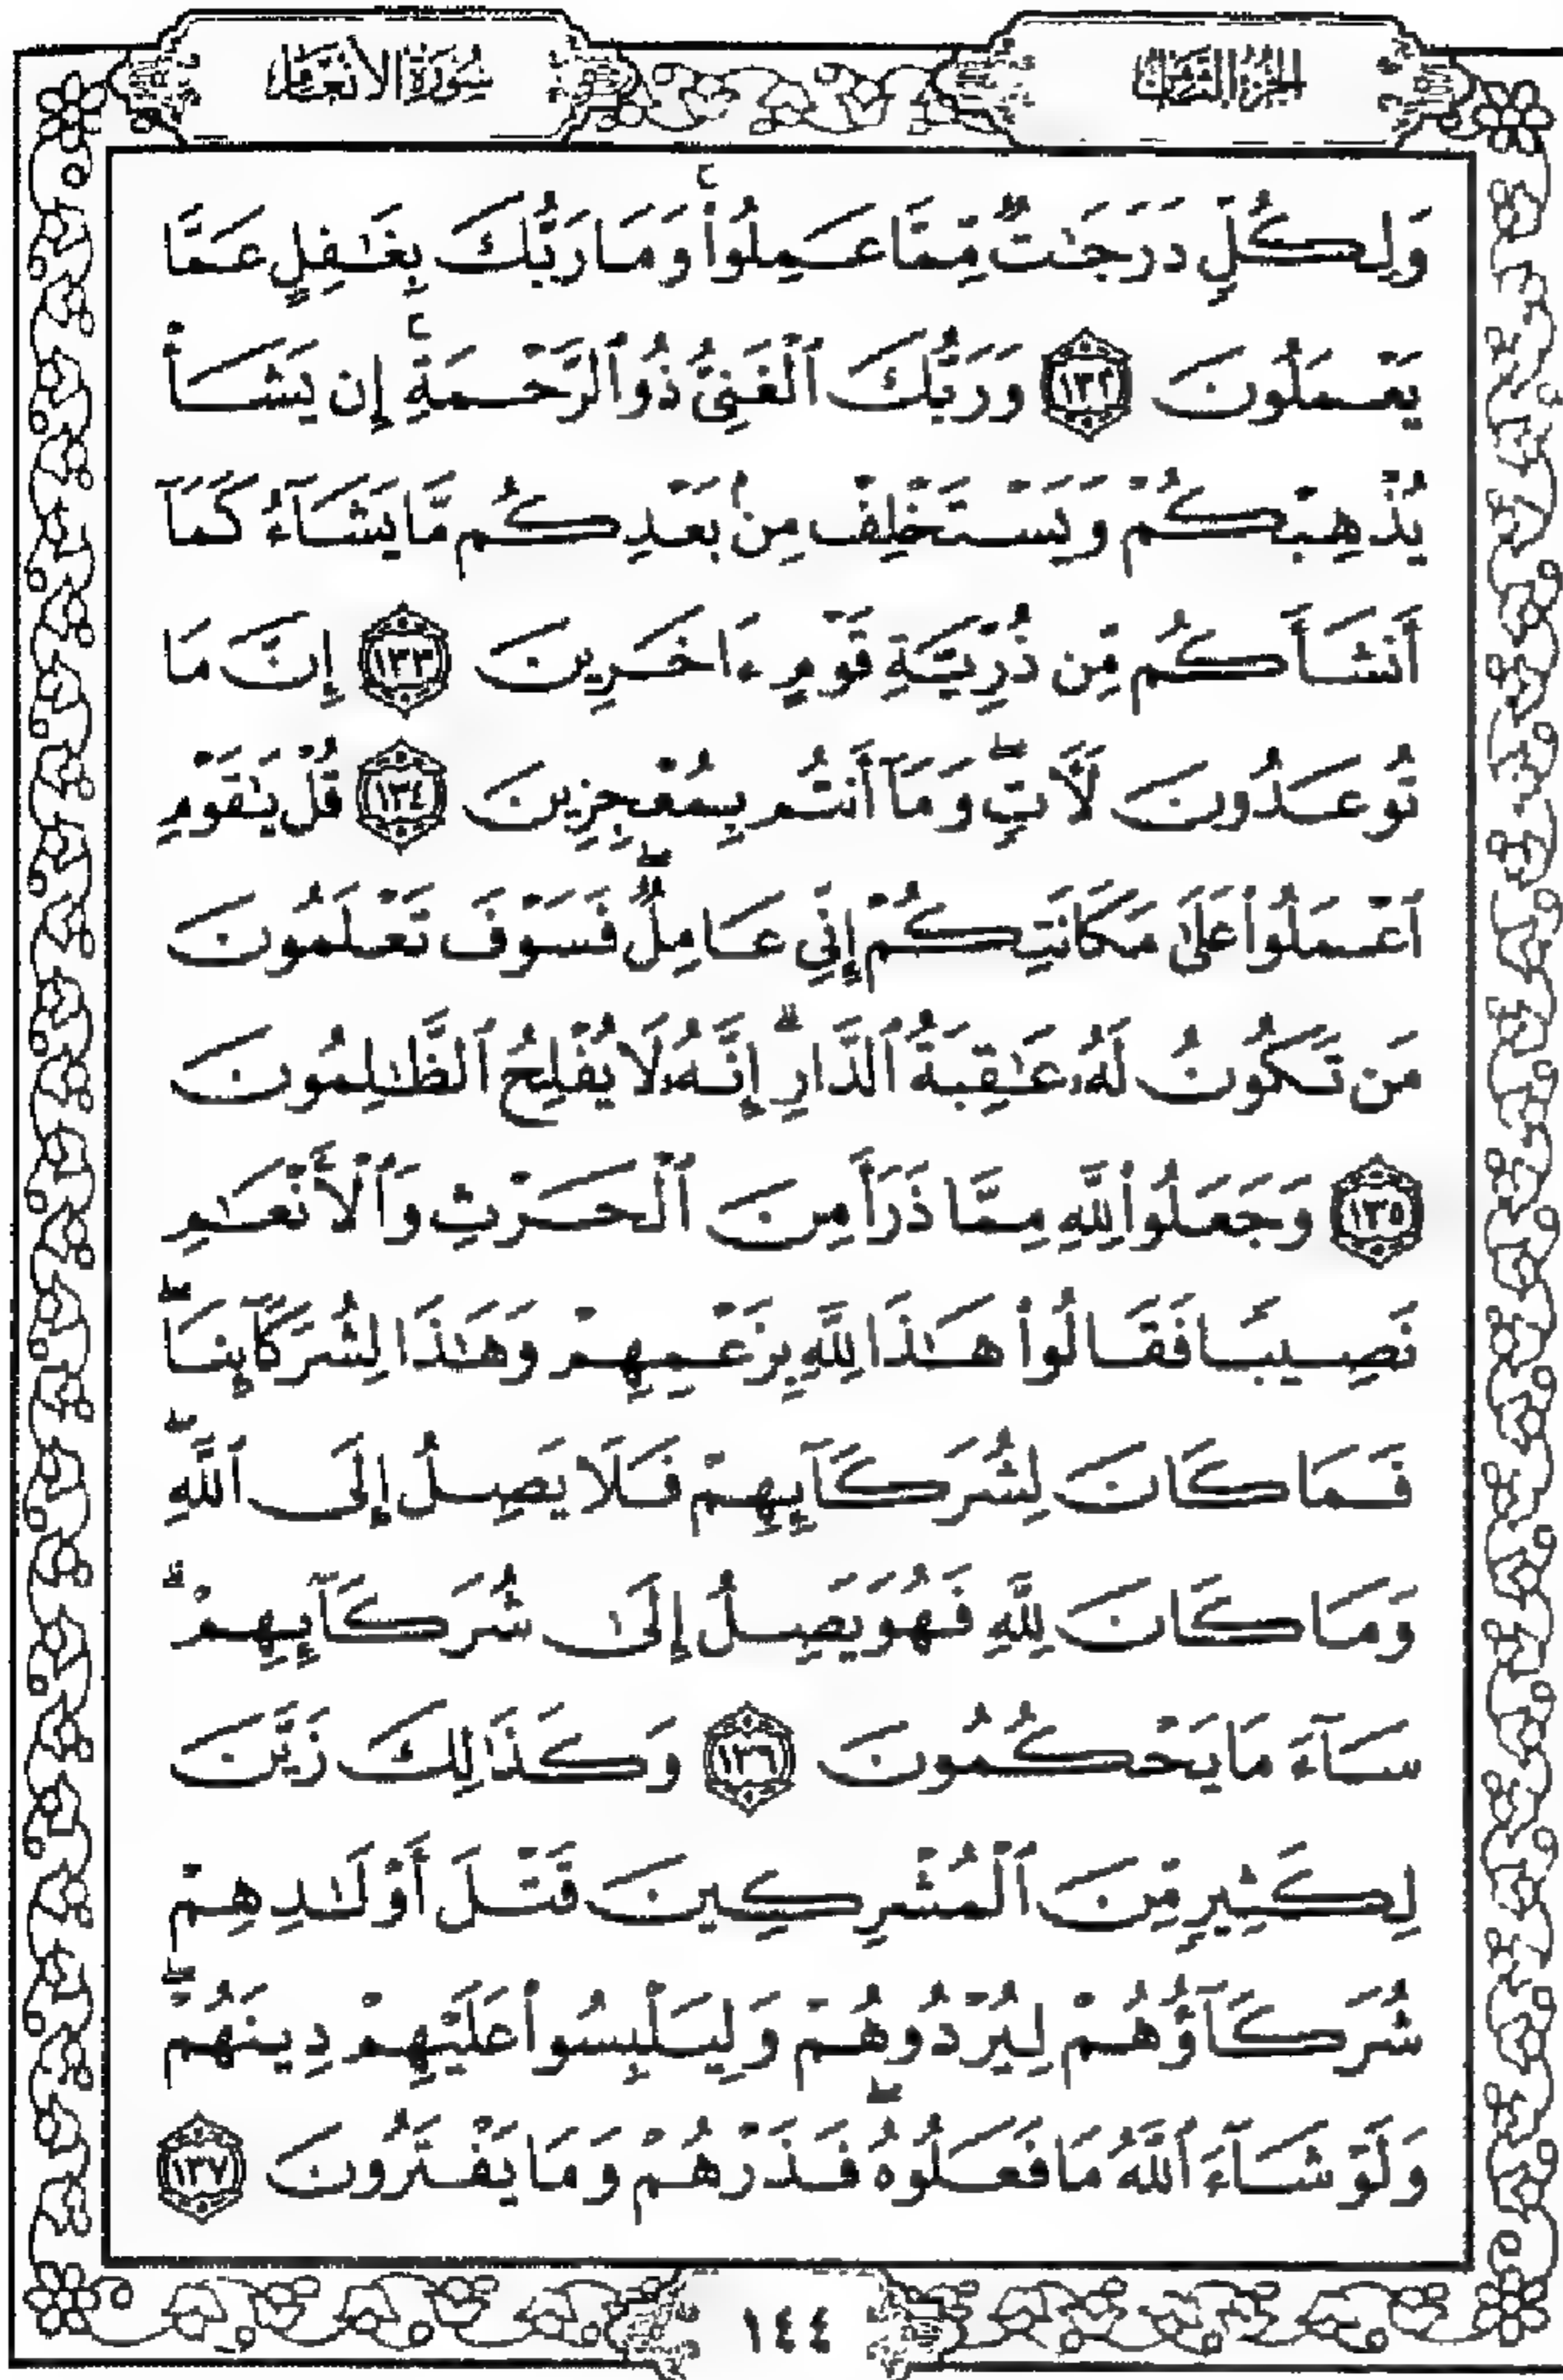 الجزء الثامن
سورة الأنعام
وَلِكُلٍّ دَرَجَٰتٌ مِّمَّا عَمِلُوا۟ ۚ وَمَا رَبُّكَ بِغَٰفِلٍ عَمَّا
يَعْمَلُونَ ١٣٢ وَرَبُّكَ ٱلْغَنِىُّ ذُو ٱلرَّحْمَةِ ۚ إِن يَشَأْ
يُذْهِبْكُمْ وَيَسْتَخْلِفْ مِنۢ بَعْدِكُم مَّا يَشَآءُ كَمَآ
أَنشَأَكُم مِّن ذُرِّيَّةِ قَوْمٍ ءَاخَرِينَ ١٣٣ إِنَّ مَا
تُوعَدُونَ لَـَٔاتٍ ۖ وَمَآ أَنتُم بِمُعْجِزِينَ ١٣٤ قُلْ يَٰقَوْمِ
ٱعْمَلُوا۟ عَلَىٰ مَكَانَتِكُمْ إِنِّى عَامِلٌ ۖ فَسَوْفَ تَعْلَمُونَ
مَن تَكُونُ لَهُۥ عَٰقِبَةُ ٱلدَّارِ ۗ إِنَّهُۥ لَا يُفْلِحُ ٱلظَّٰلِمُونَ
١٣٥ وَجَعَلُوا۟ لِلَّهِ مِمَّا ذَرَأَ مِنَ ٱلْحَرْثِ وَٱلْأَنْعَٰمِ
نَصِيبًا فَقَالُوا۟ هَٰذَا لِلَّهِ بِزَعْمِهِمْ وَهَٰذَا لِشُرَكَآئِنَا ۖ
فَمَا كَانَ لِشُرَكَآئِهِمْ فَلَا يَصِلُ إِلَى ٱللَّهِ ۖ
وَمَا كَانَ لِلَّهِ فَهُوَ يَصِلُ إِلَىٰ شُرَكَآئِهِمْ ۗ
سَآءَ مَا يَحْكُمُونَ ١٣٦ وَكَذَٰلِكَ زَيَّنَ
لِكَثِيرٍ مِّنَ ٱلْمُشْرِكِينَ قَتْلَ أَوْلَٰدِهِمْ
شُرَكَآؤُهُمْ لِيُرْدُوهُمْ وَلِيَلْبِسُوا۟ عَلَيْهِمْ دِينَهُمْ ۖ
وَلَوْ شَآءَ ٱللَّهُ مَا فَعَلُوهُ ۖ فَذَرْهُمْ وَمَا يَفْتَرُونَ ١٣٧
١٤٤